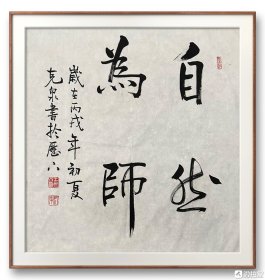 自然
為師
歲在丙戌年初夏
克泉書於歷下